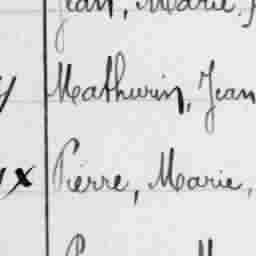 Jean, Marie,
y Mathurin, Jean
x Pierre, Marie,